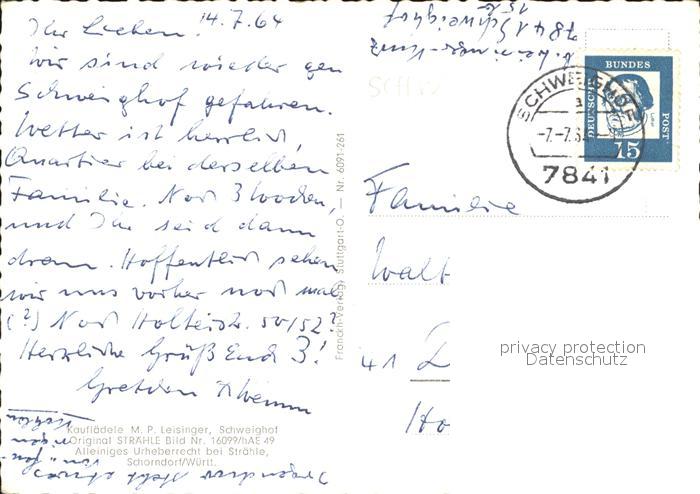 14.7.64
Ihr Lieben!
wir sind wieder gen
Schweighof gefahren.
Wetter ist herrlich,
Quartier bei derselben
Familie. Noch 3 Wochen,
und Ihr seid dann
dran. Hoffentlich sehen
wir uns vorher noch mal
(?) Noch Holteistr. 50/52?
Herzliche Grüße Euch 3!
Gretchen
Kauflädele M. P. Leisinger, Schweighof
Original STRÄHLE Bild Nr. 16099/hAE 49
Alleiniges Urheberrecht bei Strähle,
Schorndorf/Württ.
Franckh-Verlag, Stuttgart-O. — Nr. 6091-261
7841 Schweighof
DEUTSCHE
BUNDES
POST
15
SCHWEIGHOF
a
-7.-7.64
7841
Familie
Walt
41 D
Ho
privacy protection
Datenschutz